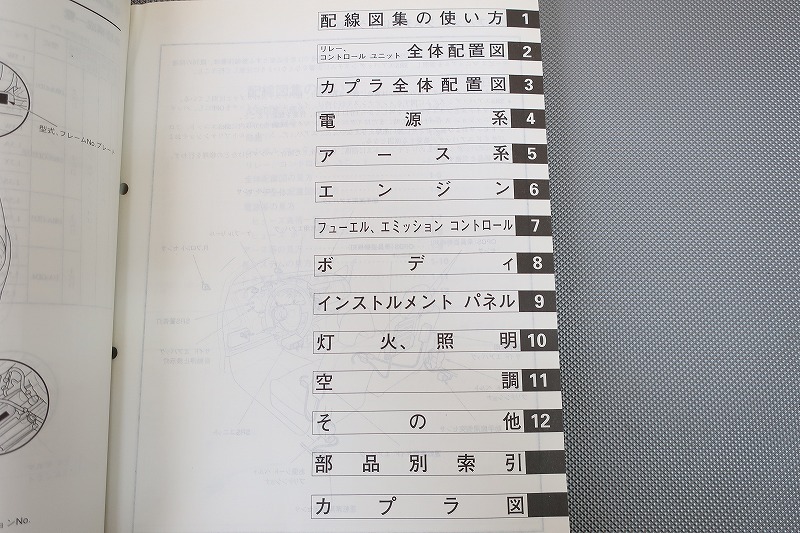 配線図集の使い方 1
リレー、
コントロール ユニット 全体配置図 2
カプラ全体配置図 3
電源系 4
アース系 5
エンジン 6
フューエル、エミッション コントロール 7
ボディ 8
インストルメント パネル 9
灯火、照明 10
空調 11
その他 12
部品別索引
カプラ図
型式、フレームNo.プレート
ョンNo.